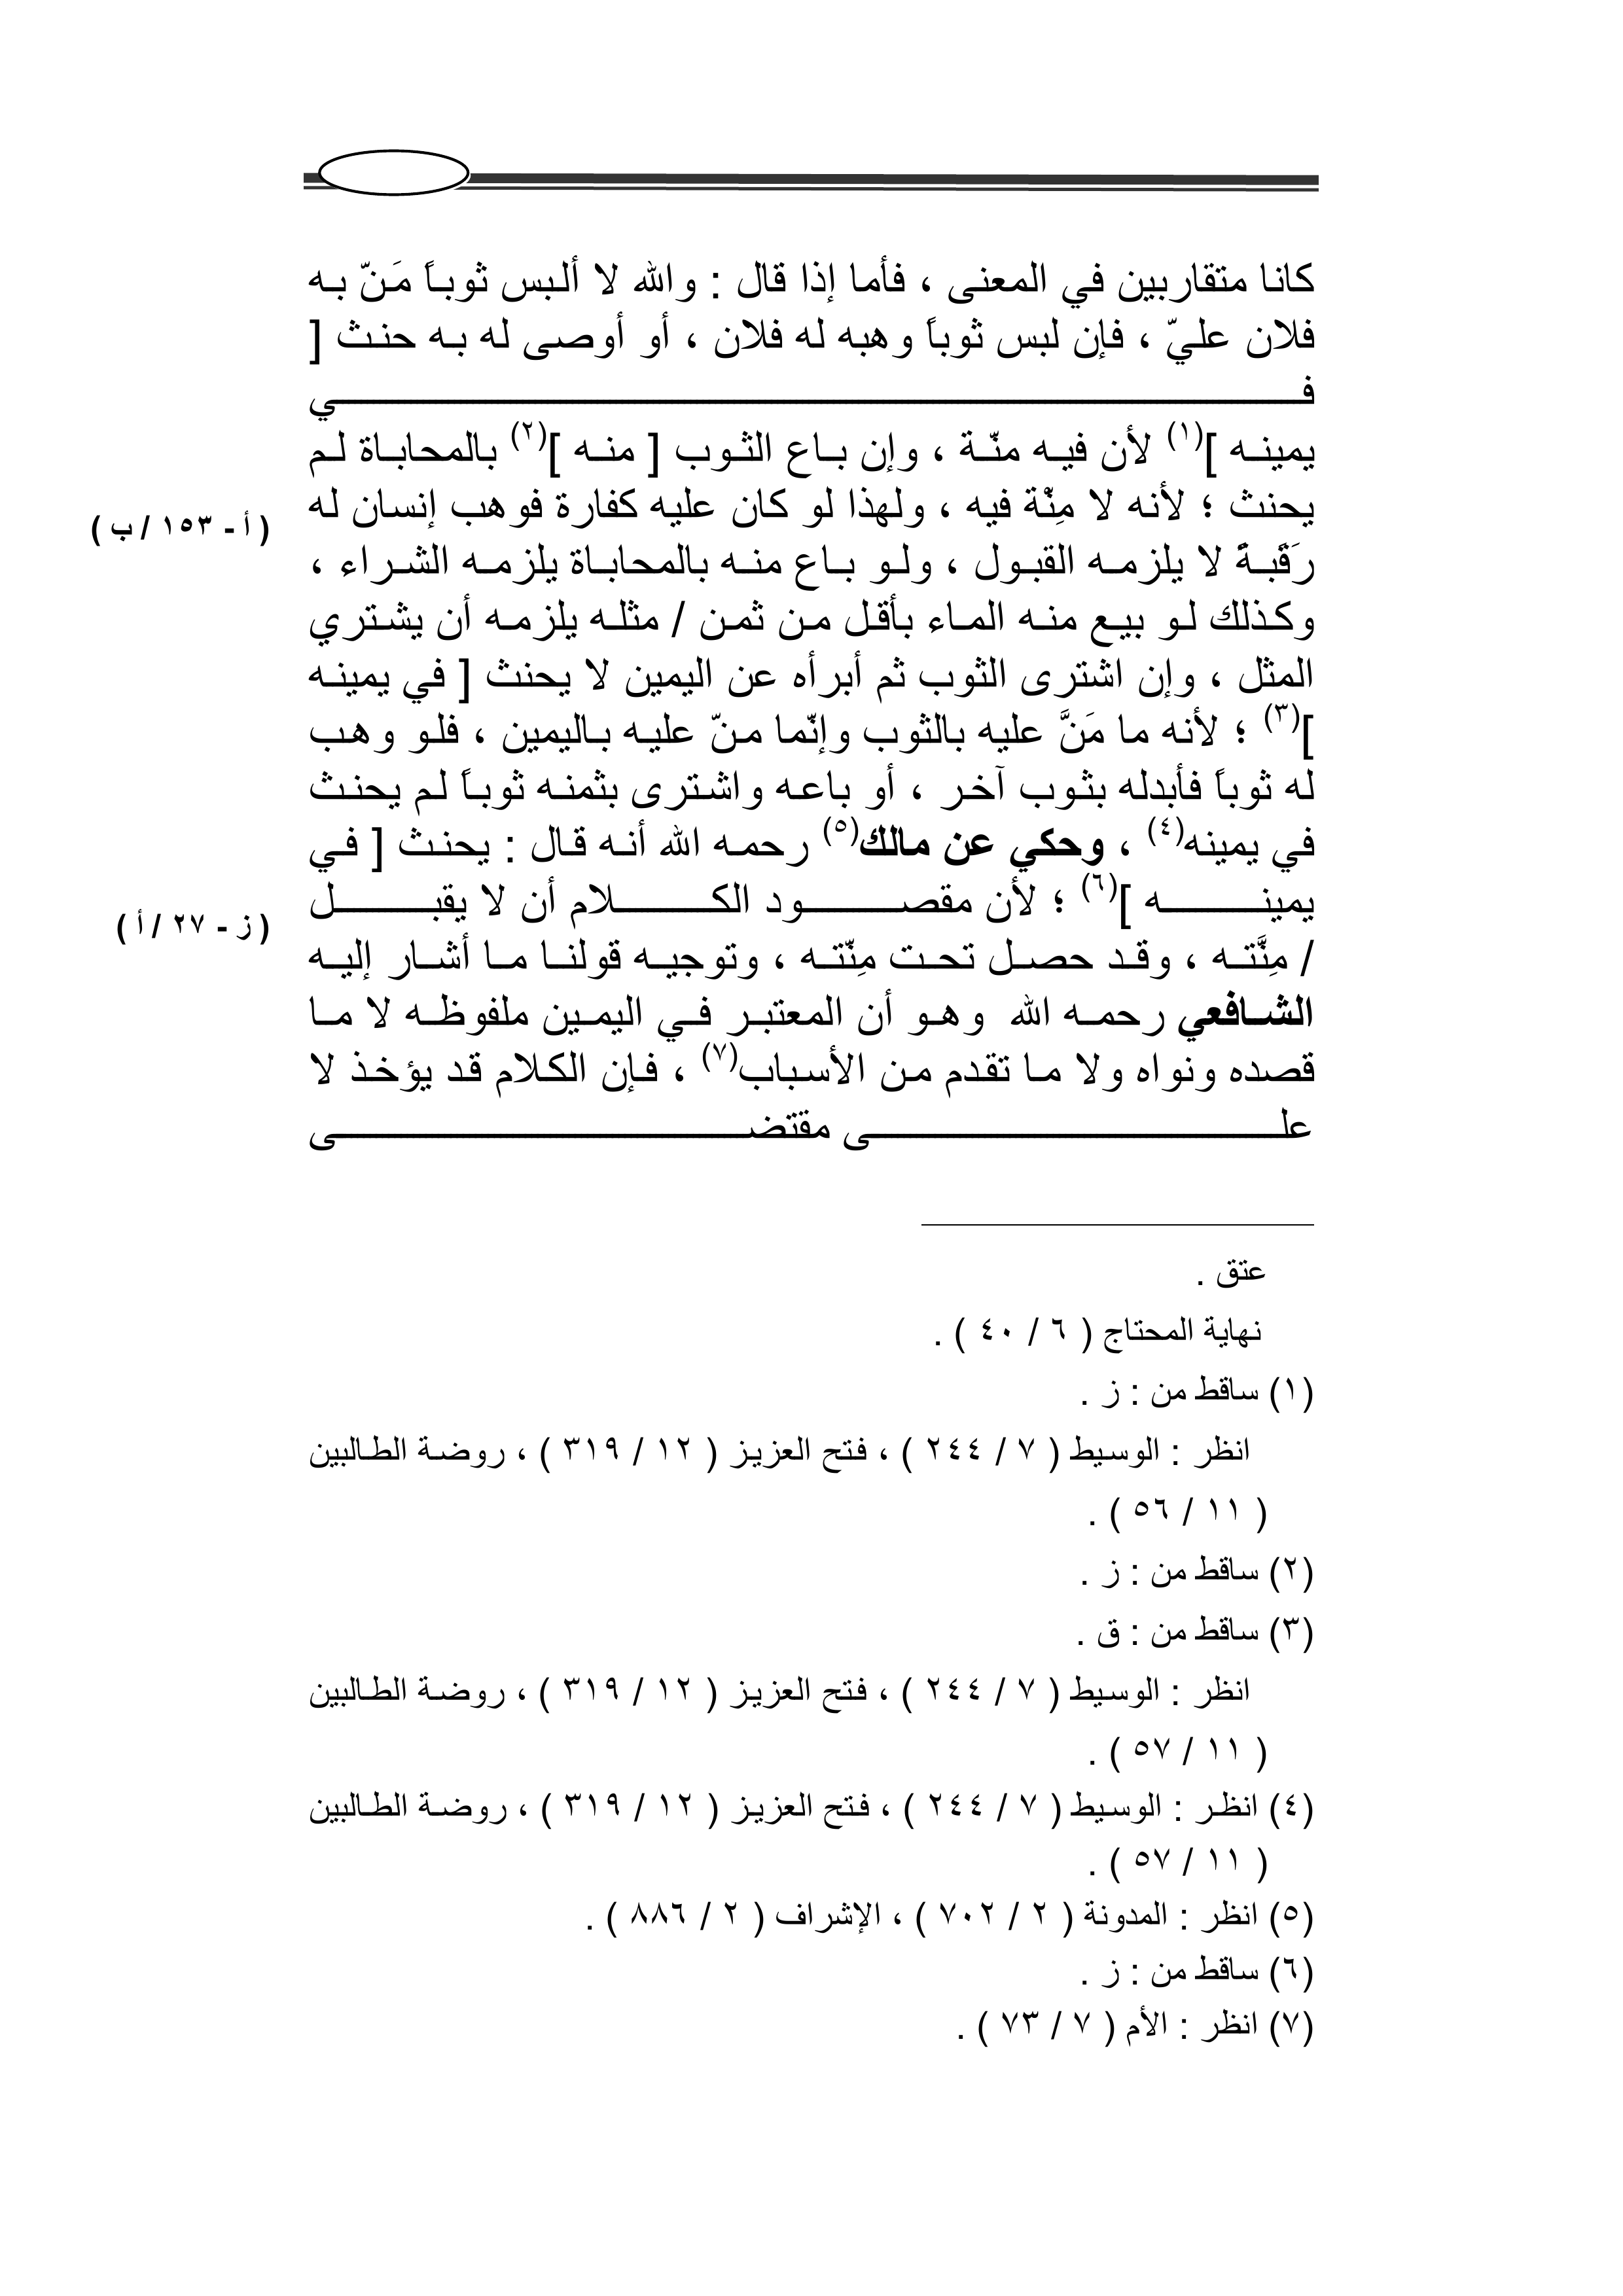 كانا متقاربين في المعنى ، فأما إذا قال : والله لا ألبس ثوباً مَنّ به
فلان عليّ ، فإن لبس ثوباً وهبه له فلان ، أو أوصى له به حنث [
في
يمينه ](١) لأن فيه منّة ، وإن باع الثوب [ منه ](٢) بالمحاباة لم
يحنث ؛ لأنه لا مِنّْة فيه ، ولهذا لو كان عليه كفارة فوهب إنسان له
( أ - ١٥٣ / ب )
رَقَبةً لا يلزمه القبول ، ولو باع منه بالمحاباة يلزمه الشراء ،
وكذلك لو بيع منه الماء بأقل من ثمن / مثله يلزمه أن يشتري
المثل ، وإن اشترى الثوب ثم أبرأه عن اليمين لا يحنث [ في يمينه
](٣) ؛ لأنه ما مَنَّ عليه بالثوب وإنّما منّ عليه باليمين ، فلو وهب
له ثوباً فأبدله بثوب آخر ، أو باعه واشترى بثمنه ثوباً لم يحنث
في يمينه(٤) ، وحكي عن مالك(٥) رحمه الله أنه قال : يحنث [ في
يمينه ](٦) ؛ لأن مقصود الكلام أن لا يقبل
( ز - ٢٧ / أ )
/ مِنَّته ، وقد حصل تحت مِنّته ، وتوجيه قولنا ما أشار إليه
الشافعي رحمه الله وهو أن المعتبر في اليمين ملفوظه لا ما
قصده ونواه ولا ما تقدم من الأسباب(٧) ، فإن الكلام قد يؤخذ لا
على مقتضى
عتق .
نهاية المحتاج ( ٦ / ٤٠ ) .
(١) ساقط من : ز .
انظر : الوسيط ( ٧ / ٢٤٤ ) ، فتح العزيز ( ١٢ / ٣١٩ ) ، روضة الطالبين
( ١١ / ٥٦ ) .
(٢) ساقط من : ز .
(٣) ساقط من : ق .
انظر : الوسيط ( ٧ / ٢٤٤ ) ، فتح العزيز ( ١٢ / ٣١٩ ) ، روضة الطالبين
( ١١ / ٥٧ ) .
(٤) انظر : الوسيط ( ٧ / ٢٤٤ ) ، فتح العزيز ( ١٢ / ٣١٩ ) ، روضة الطالبين
( ١١ / ٥٧ ) .
(٥) انظر : المدونة ( ٢ / ٧٠٢ ) ، الإشراف ( ٢ / ٨٨٦ ) .
(٦) ساقط من : ز .
(٧) انظر : الأم ( ٧ / ٧٣ ) .